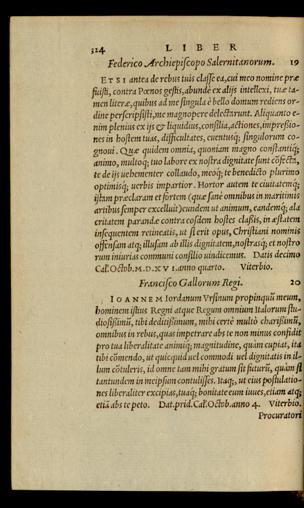 324 LIBER
Federico Archiepiscopo Salernitanorum. 19
ETSI antea de rebus tuis classe ea, cui meo nomine præ
fuisti, contra Pœnos gestis, abunde ex alijs intellexi, tuæ ta-
men literæ, quibus ad me singula è bello domum rediens or-
dine perscripsisti, me magnopere delectarunt. Aliquanto e-
nim plenius ex ijs & liquidius, consilia, actiones, impressio-
nes in hostem tuas, difficultates, euentusq; singulorum co-
gnoui. Quæ quidem omnia, quoniam magno constantiq;
animo, multoq; tuo labore ex nostra dignitate sunt cõfectã,
te de ijs uehementer collaudo, meoq; te benedicto plurimo
optimisq; uerbis impartior. Hortor autem te ciuitatemq;
istam præclaram et fortem (quæ sanè omnibus in maritimis
artibus semper excelluit) eundem ut animum, eandemq; ala
critatem parandæ contra eosdem hostes classis, in æstatem
insequentem retineatis, ut si erit opus, Christiani nominis
offensam atq; illusam ab illis dignitatem, nostrasq; et nostro
rum iniurias communi consilio uindicemus. Datis decimo
Cal. Octob. M.D.XVI. anno quarto. Viterbio.
Francisco Gallorum Regi. 20
IOANNEM Iordanum Vrsinum propinquũ meum,
hominem istius Regni atque Regum omnium Italorum stu-
diosissimũ, tibi deditissimum, mihi certè multò charissimũ,
omnibus in rebus, quas impetrare abs te non minus confidit
pro tua liberalitate animiq; magnitudine, quàm cupiat, ita
tibi cõmendo, ut quicquid uel commodi uel dignitatis in il-
lum cõtuleris, id omne tam mihi gratum sit futurũ, quàm si
tantundem in meipsum contulisses. Itaq;, ut eius postulatio-
nes liberaliter excipias, tuaq; bonitate eum iuues, etiam atq;
etiã abs te peto. Dat. prid. Cal. Octob. anno 4. Viterbio.
Procuratori